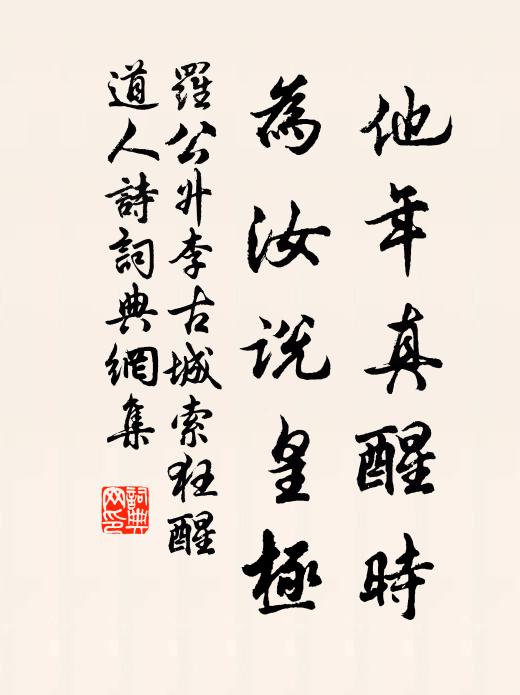 他年真醒時
為汝說皇極
羅公升李古城索狂醒
道人詩詞典網集
詞典網印